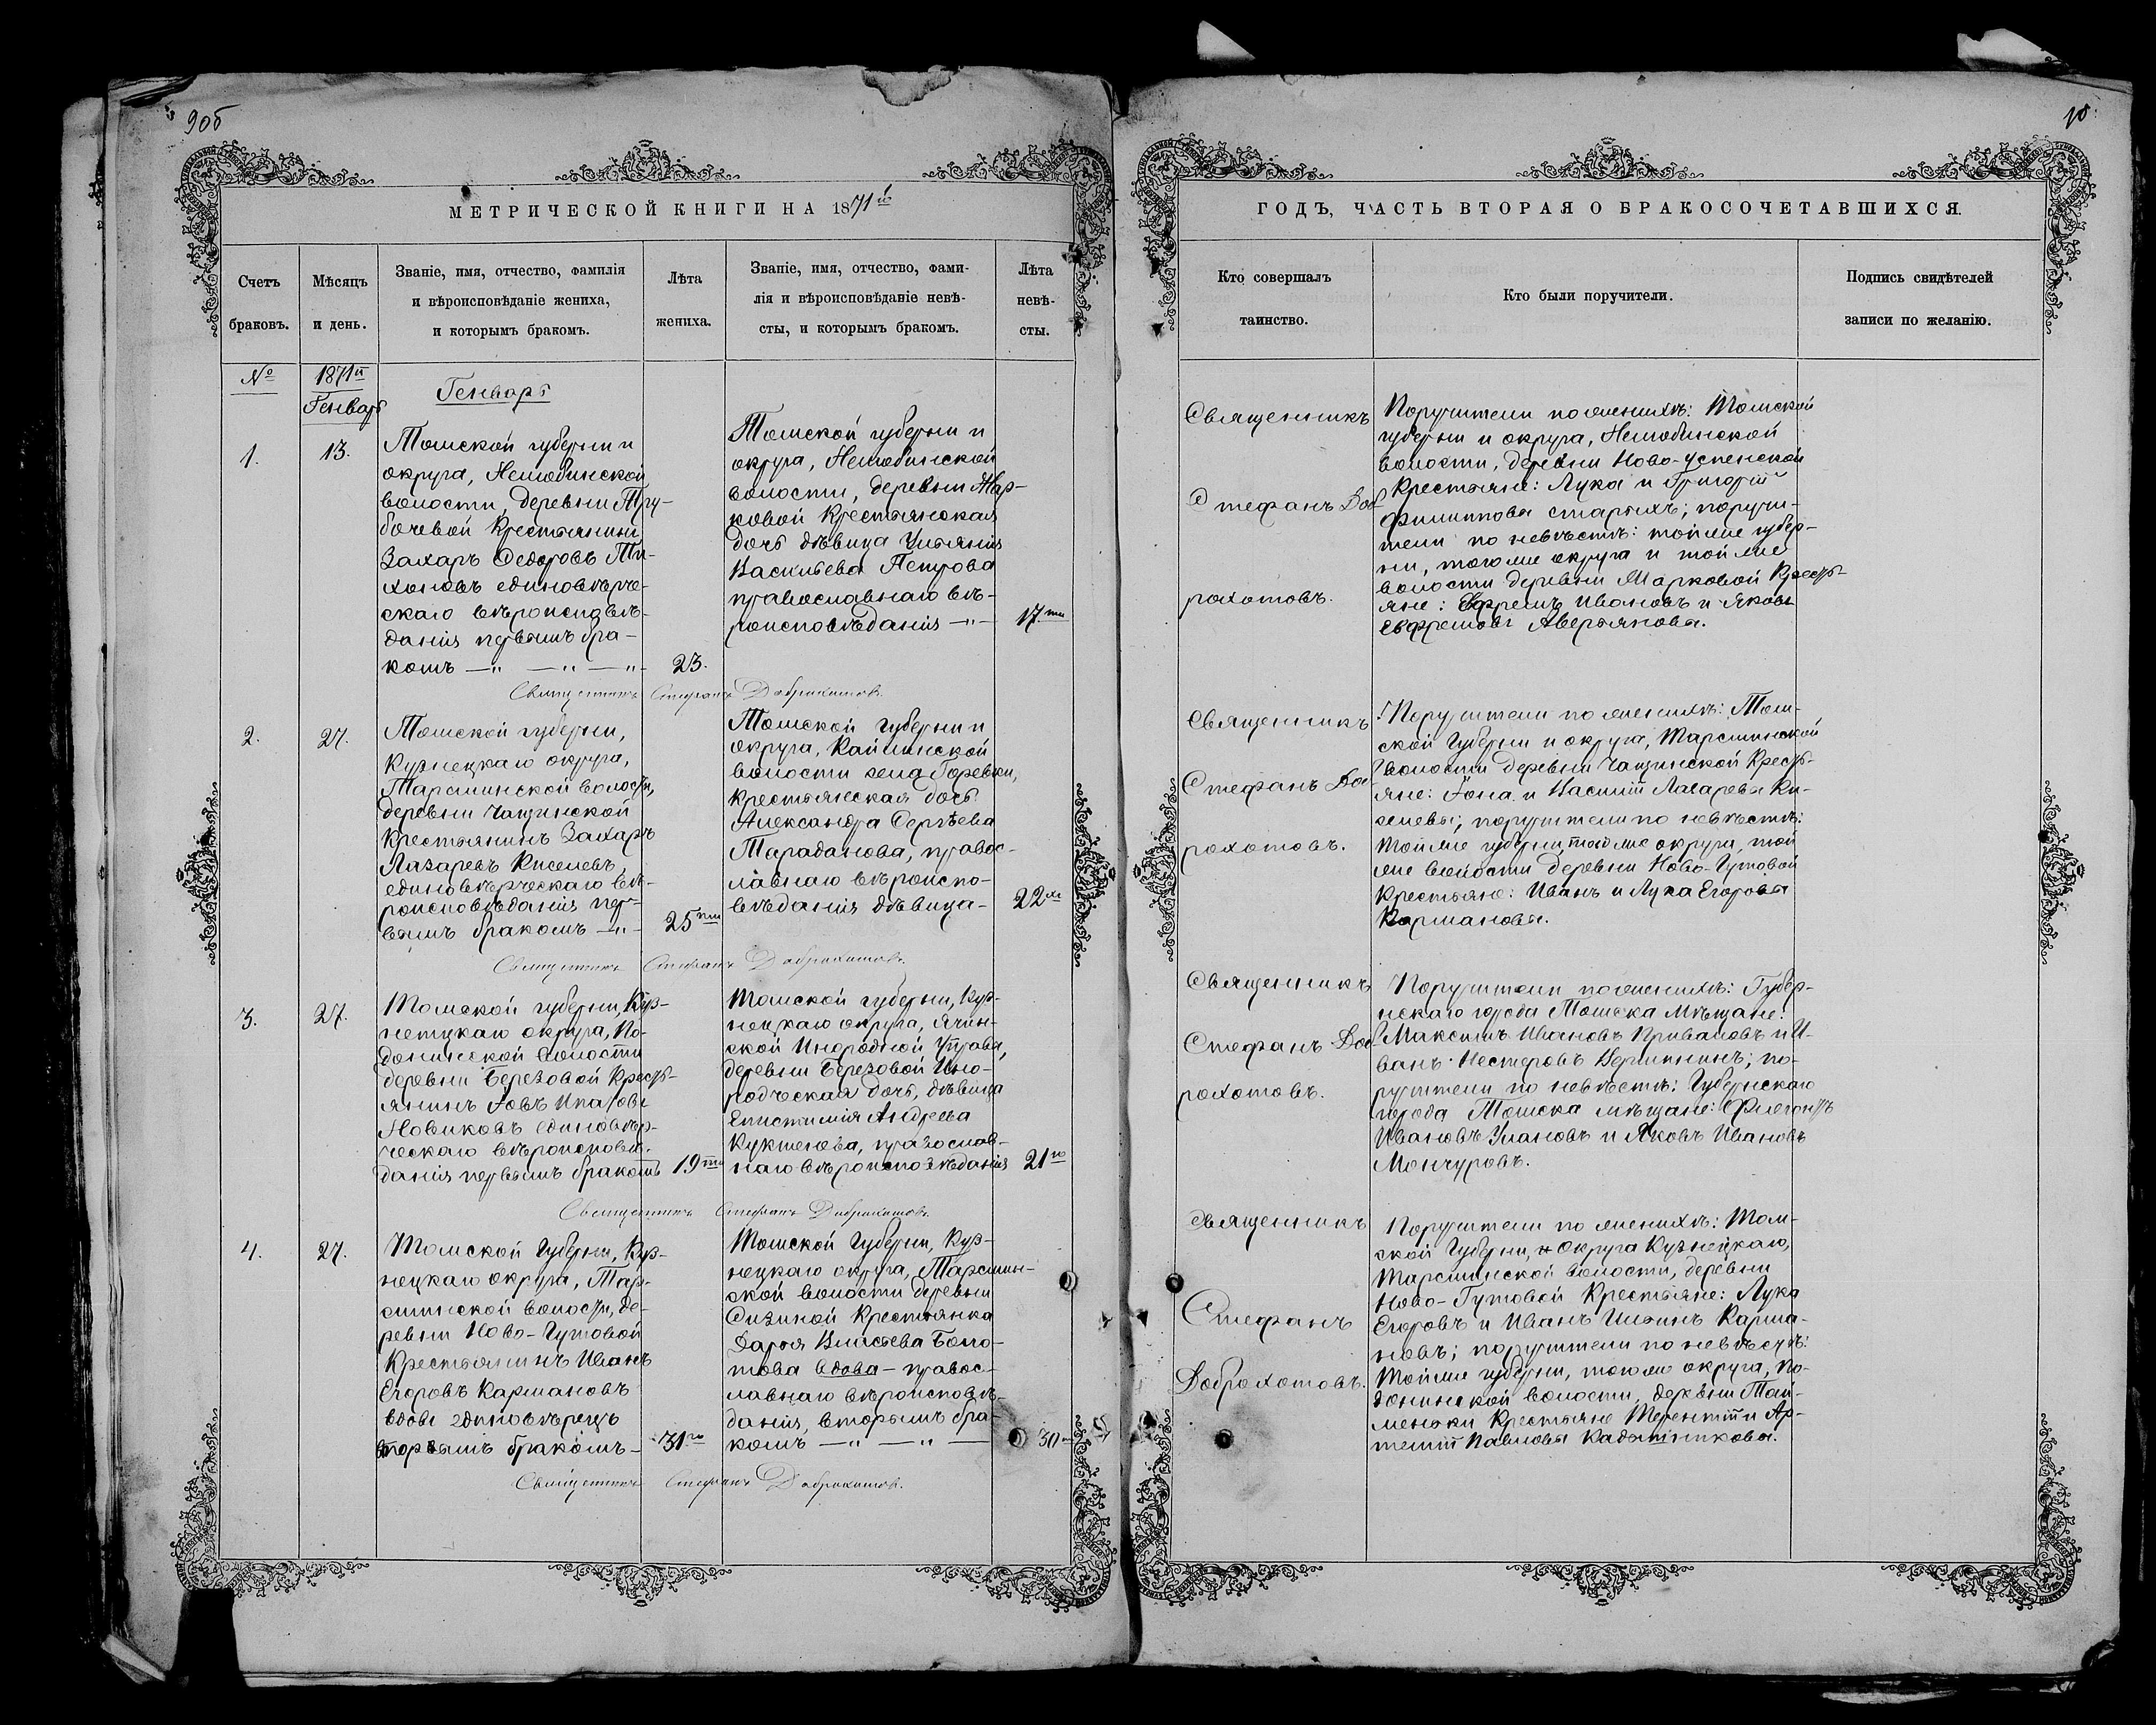 9об
МЕТРИЧЕСКОЙ КНИГИ НА 1871й
Счетъ
браковъ.
Мѣсяцъ
и день.
Званіе, имя, отчество, фамилія
и вѣроисповѣданіе жениха,
и которымъ бракомъ.
Лѣта
жениха.
Званіе, имя, отчество, фами-
лія и вѣроисповѣданіе невѣ-
сты, и которымъ бракомъ.
Лѣта
невѣ-
сты.
№
1871й
Генварь
Генварь
1.
13.
Томской губерніи и
округа, Нелюбинской
волости, деревни Тру-
бочевой Крестьянинъ
Захаръ Федоровъ Ти-
хоновъ единовѣрче-
скаго вѣроисповѣ-
данія первымъ бра-
комъ — „ — „ — „ -
23.
Томской губерніи и
округа, Нелюбинской
волости, деревни Мар-
ковой Крестьянская
дочь дѣвица Ульянія
Васильева Петрова
православнаго вѣ-
роисповѣданія — „ —
17.ти
Священникъ Стефанъ Доброхотовъ.
2.
27.
Томской губерніи,
Кузнецкаго округа,
Тарсминской волости,
деревни Чащинской
Крестьянинъ Захаръ
Лазаревъ Киселевъ,
единовѣрческаго вѣ-
роисповѣданія пер-
вымъ бракомъ — „ -
25ти
Томской губерніи и
округа, Кайлинской
волости села Горевки,
Крестьянская дочь
Александра Сергѣева
Тараданова, правос-
лавнаго вѣроиспо-
вѣданія дѣвица -
22хъ
Священникъ Стефанъ Доброхотовъ.
3.
27.
Томской губерніи, Куз-
нецкаго округа, По-
донинской волости
деревни Березовой Кресть-
янинъ Іовъ Ипатовъ
Новиковъ единовѣр-
ческаго вѣроисповѣ-
данія первымъ бракомъ
19ти
Томской губерніи, Куз-
нецкаго округа, Ячин-
ской Инородной Управы,
деревни Березовой Ино-
родческая дочь, дѣвица
Епистимія Андреева
православ-
наго вѣроисповѣданія
21го
Священникъ Стефанъ Доброхотовъ.
4.
27.
Томской Губерніи, Куз-
нецкаго округа, Тар-
сминской волости, де-
ревни Ново-Гутовой
Крестьянинъ Иванъ
Егоровъ Кармановъ
вдовъ единовѣрецъ
вторымъ бракомъ -
31го
Томской Губерніи, Куз-
нецкаго округа, Тарсмин-
ской волости деревни
Сизиной Крестьянка
Дарья Власьева Боло-
това вдова - правос-
лавнаго вѣроисповѣ-
данія, вторымъ бра-
комъ — „ — „ —
30
Священникъ Стефанъ Доброхотовъ.
10
ГОДЪ, ЧАСТЬ ВТОРАЯ О БРАКОСОЧЕТАВШИХСЯ.
Кто совершалъ
таинство.
Кто были поручители.
Подпись свидѣтелей
записи по желанію.
Священникъ
Стефанъ Доб-
рохотовъ.
Поручители по женихѣ: Томской
губерніи и округа, Нелюбинской
волости, деревни Ново-Успенской
Крестьяне: Лука и Григорій
Филипповы старыхъ; поручи-
тели по невѣстѣ: той же губер-
ніи, того же округа и той же
волости деревни Марковой Кресть-
яне: Ефремъ Ивановъ и Яковъ
Евфремовъ Аверьяновы.
Священникъ
Стефанъ Доб-
рохотовъ.
Поручители по женихѣ: Том-
ской Губерніи и округа, Тарсминской
волости деревни Чащинской Кресть-
яне: Іона и Василій Лазаревы Ки-
селевы; поручители по невѣстѣ:
той же губерніи, того же округа, той
же волости деревни Ново-Гутовой
Крестьяне: Иванъ и Лука Егоровы
Кармановы.
Священникъ
Стефанъ Доб-
рохотовъ.
Поручители по женихѣ: Губер-
нскаго города Томска Мѣщане:
Максимъ Ивановъ Приваловъ и И-
ванъ Нестеровъ Вершининъ; по-
ручители по невѣстѣ: Губернскаго
города Томска мѣщане: Флегонтъ
Ивановъ Улановъ и Яковъ Ивановъ
Мончуровъ.
Священникъ
Стефанъ
Доброхотовъ.
Поручители по женихѣ: Том-
ской Губерніи, и округа Кузнецкаго,
Тарсминской волости, деревни
Ново-Гутовой Крестьяне: Лука
Егоровъ и Иванъ Карма-
новъ; поручители по невѣстѣ:
той же губерніи, того же округа, По-
донинской волости, деревни
Крестьяне Терентій и Ар-
темій Павловы Кадышниковы.